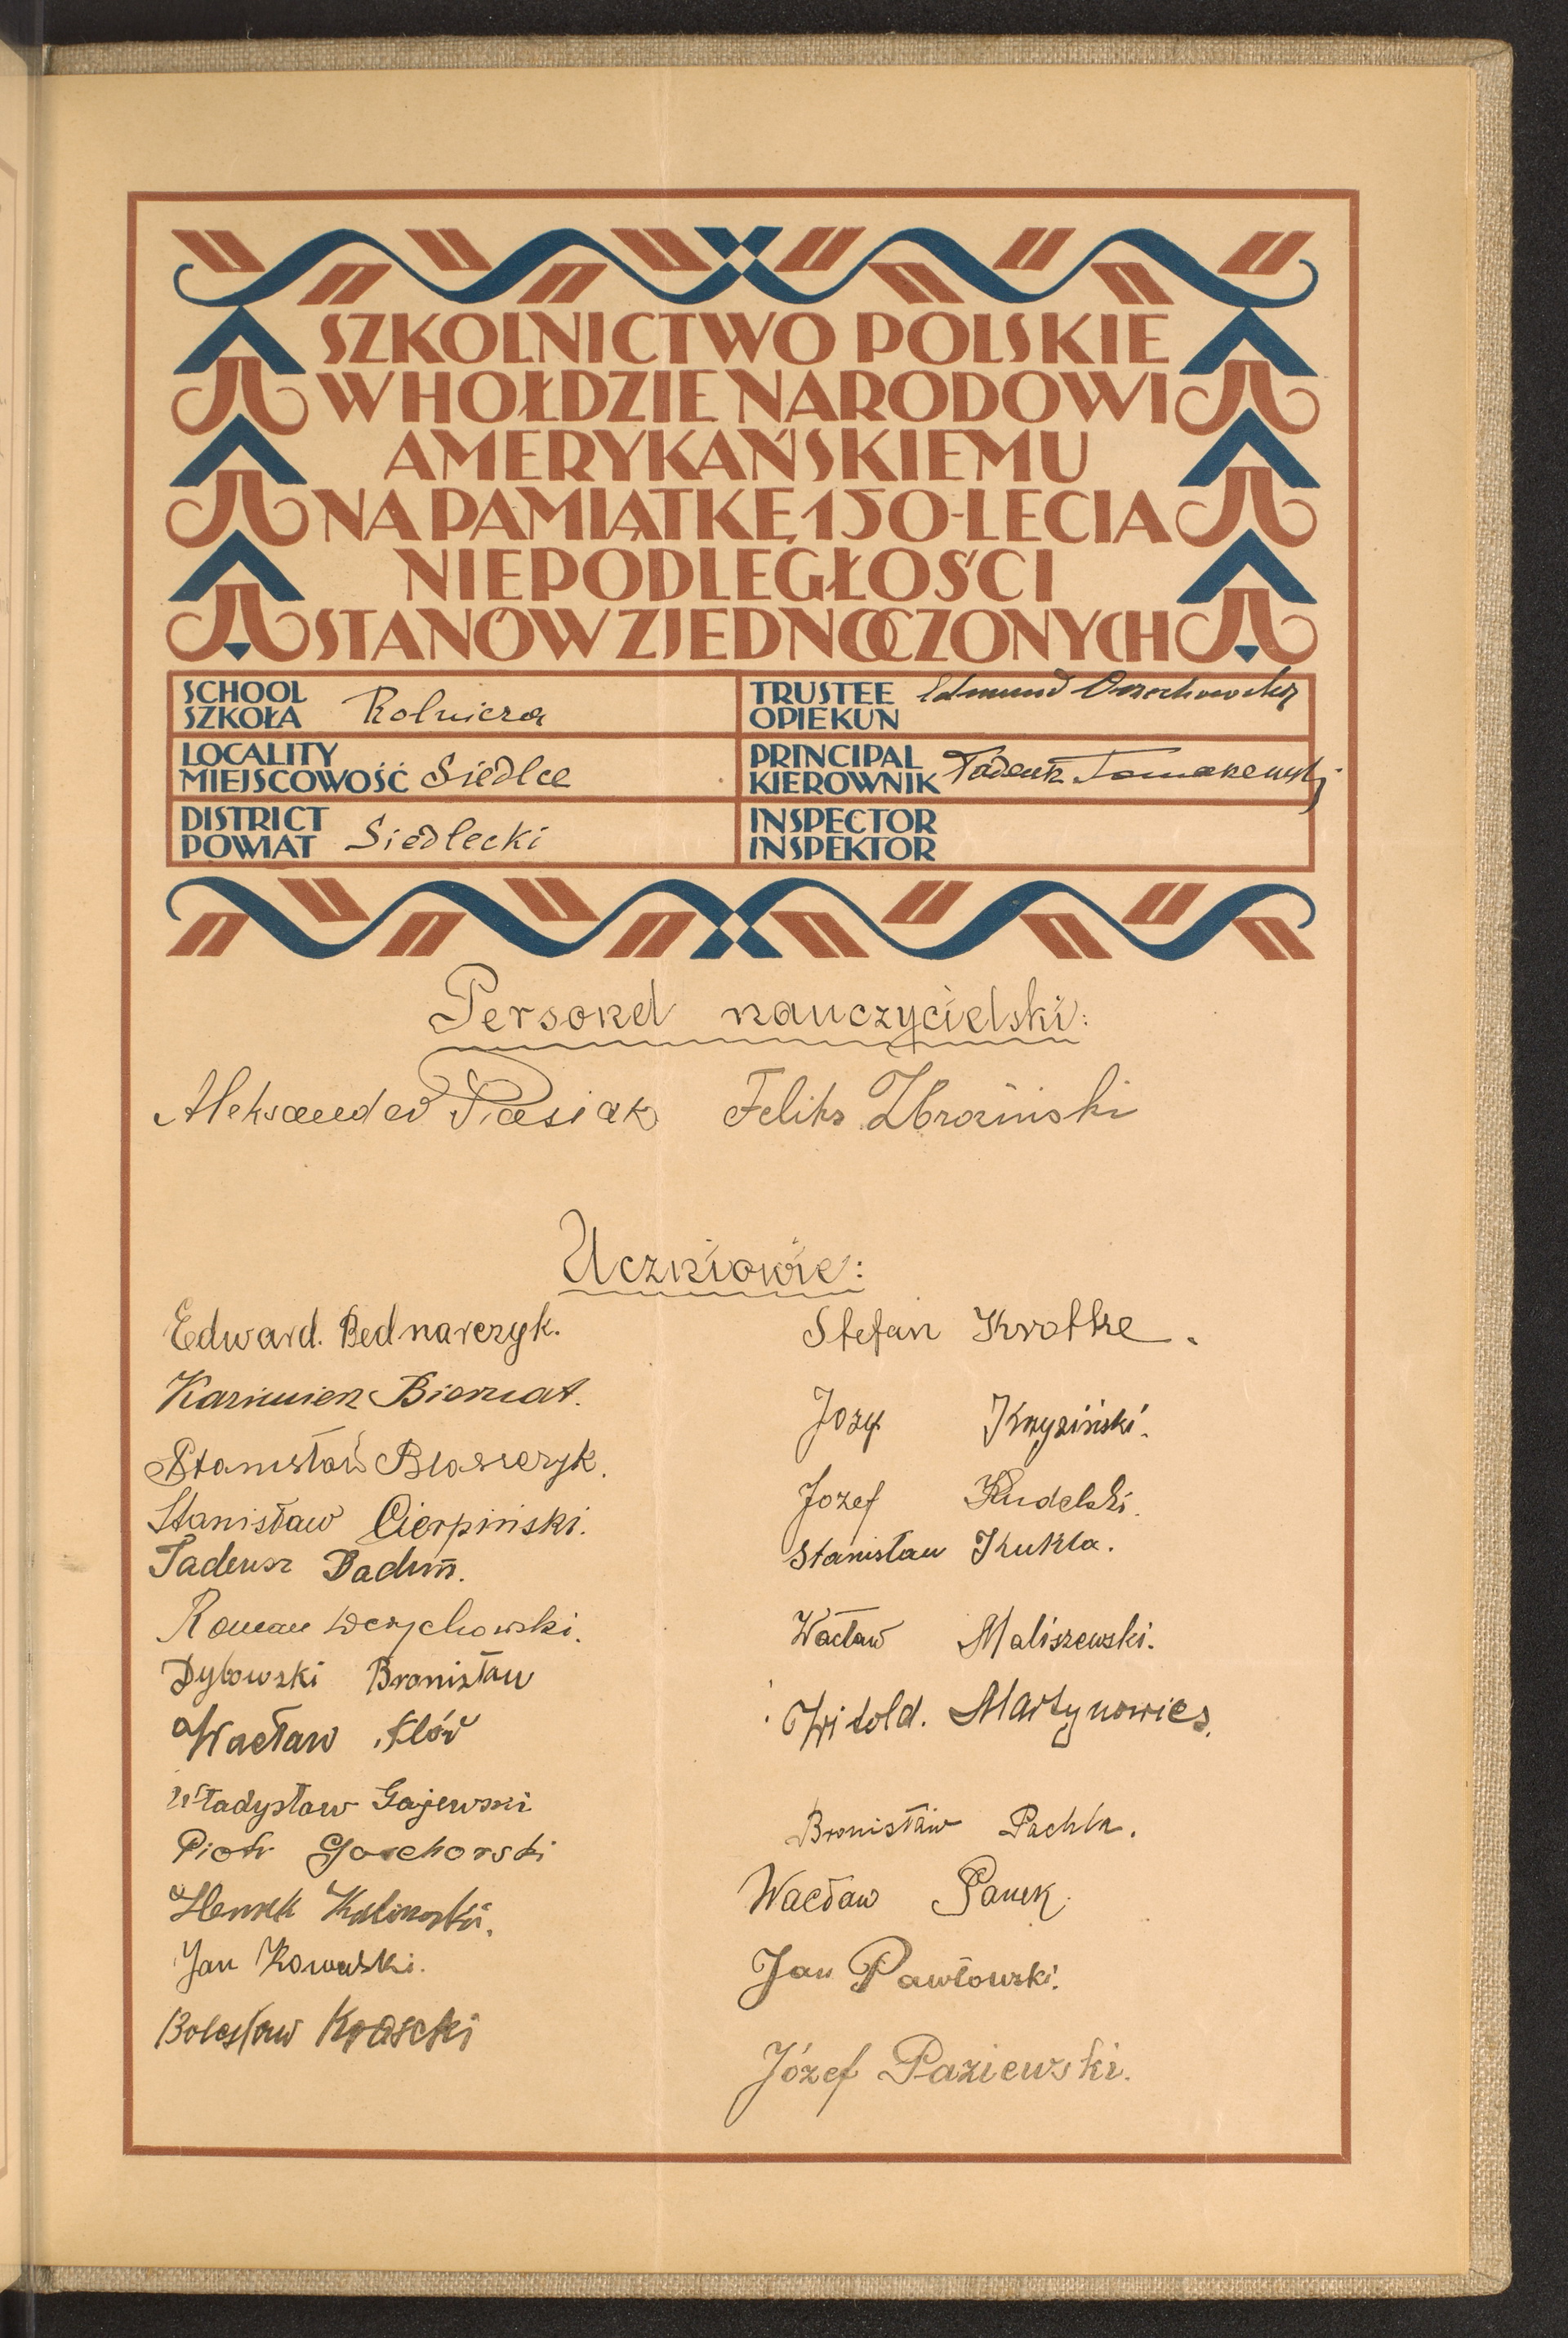 SZKOLNICTWO POLSKIE
W HOŁDZIE NARODOWI
AMERYKAŃSKIEMU
NA PAMIĄTKĘ 150-LECIA
NIEPODLEGŁOŚCI
STANÓW ZJEDNOCZONYCH
SCHOOL
SZKOŁA Rolnicza
TRUSTEE
OPIEKUN Edmund
LOCALITY
MIEJSCOWOŚĆ Siedlce
PRINCIPAL
KIEROWNIK Tadeusz
DISTRICT
POWIAT Siedlecki
INSPECTOR
INSPEKTOR
Personel nauczycielski:
Aleksander Piasiak Feliks Zbroziński
Uczniowie:
Edward. Bednarczyk.
Kazimierz Biernat.
Stanisław Błaszczyk.
Stanisław Cierpiński.
Tadeusz Dadun.
Roman Derychowski.
Dybowski Bronisław
Wacław Flór
Władysław Gajewski
Piotr Gochorski
Henryk Kalinowski.
Jan Kowalski.
Bolesław Kraseki
Stefan Krotke.
Józef Kryziński.
Jozef Kudelski.
Stanisław Kukla.
Wacław Maliszewski.
Witold. Martynowicz.
Bronisław Pachla.
Wacław Panek.
Jan Pawłowski.
Józef Paziewski.